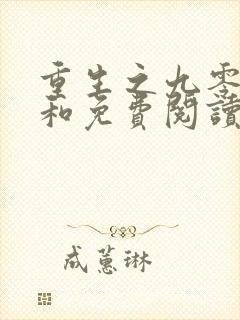 重生之九零
和免費閱讀
成蕙琳